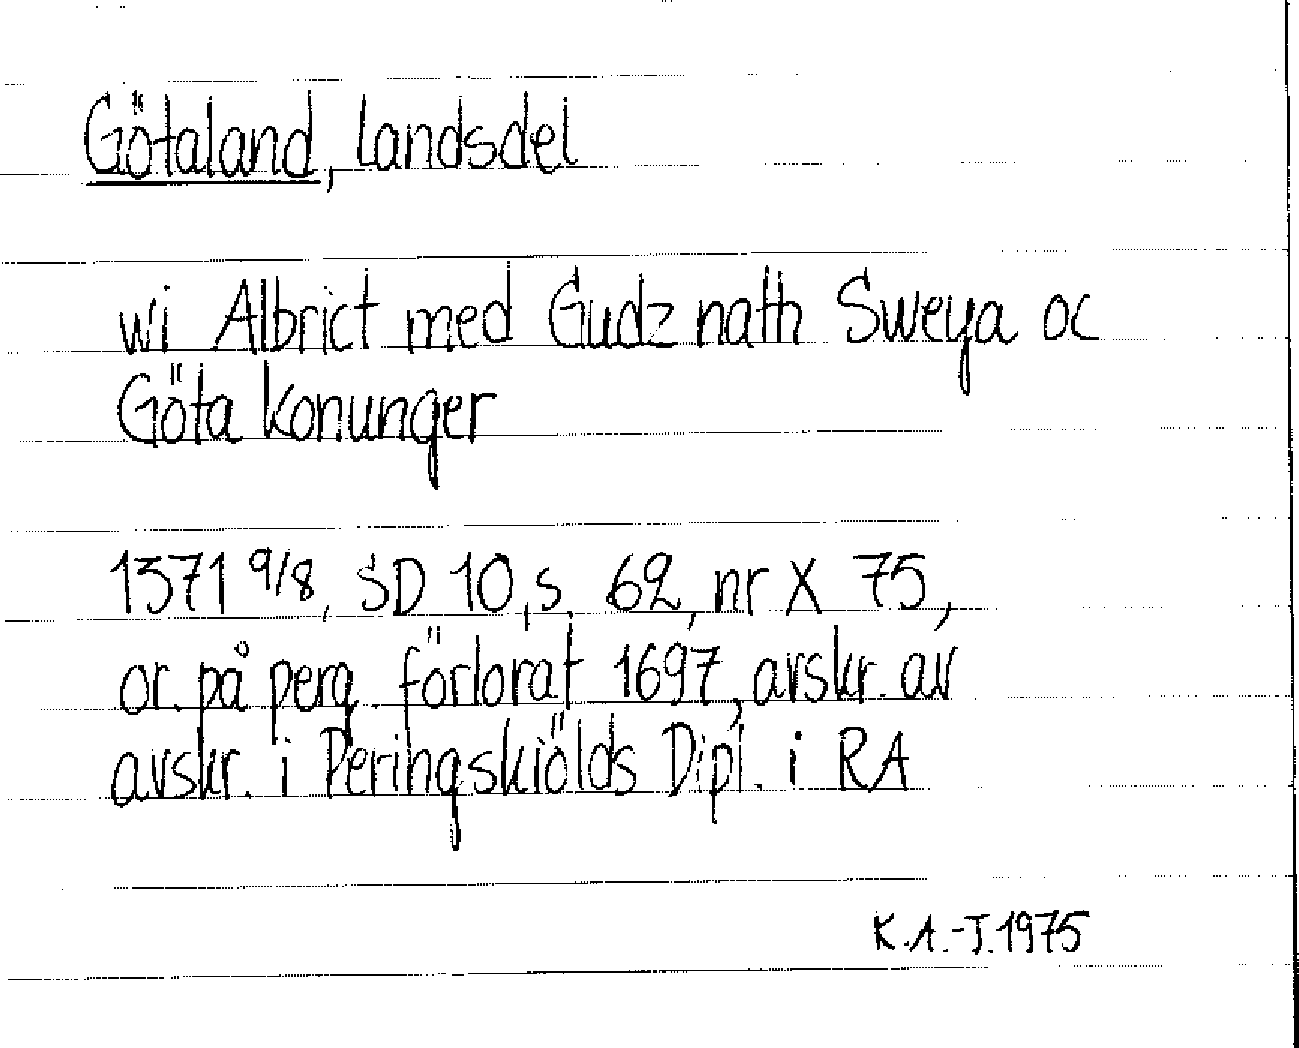 Götaland, landsdel
wi Albrict med Gudz nath Sweya oc
Göta konunger
1371 9/8, SD 10, s. 62, nr X 75,
or. på perg. förlorat 1697, avskr. av
avskr. i Peringskiölds Dipl. i RA
K.A.-J. 1975